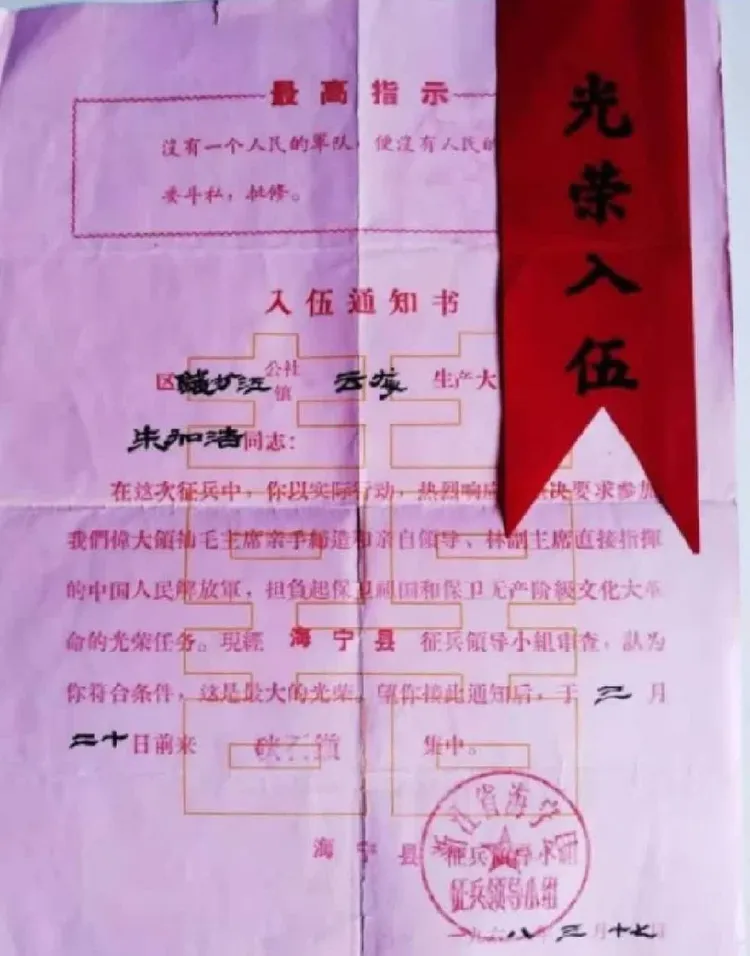 最高指示
没有一个人民的军队,便没有人民的
要斗私,批修。
入伍通知书
区 公社 镇 云龙 生产大
朱加浩同志:
在这次征兵中,你以实际行动,热烈响应 决要求参加
我們偉大領袖毛主席亲手締造和亲自领导、林副主席直接指揮
的中国人民解放軍,担负起保卫祖国和保卫无产阶級文化大革
命的光荣任务。現經 海宁县 征兵領导小組审查,認为
你符合条件,这是最大的光荣。望你接此通知后,于 三 月
二十日前来 硖石镇 集中。
海宁县 征兵領导小組
浙江省海宁县
征兵领导小组
一九六八年三月十七日
光荣入伍